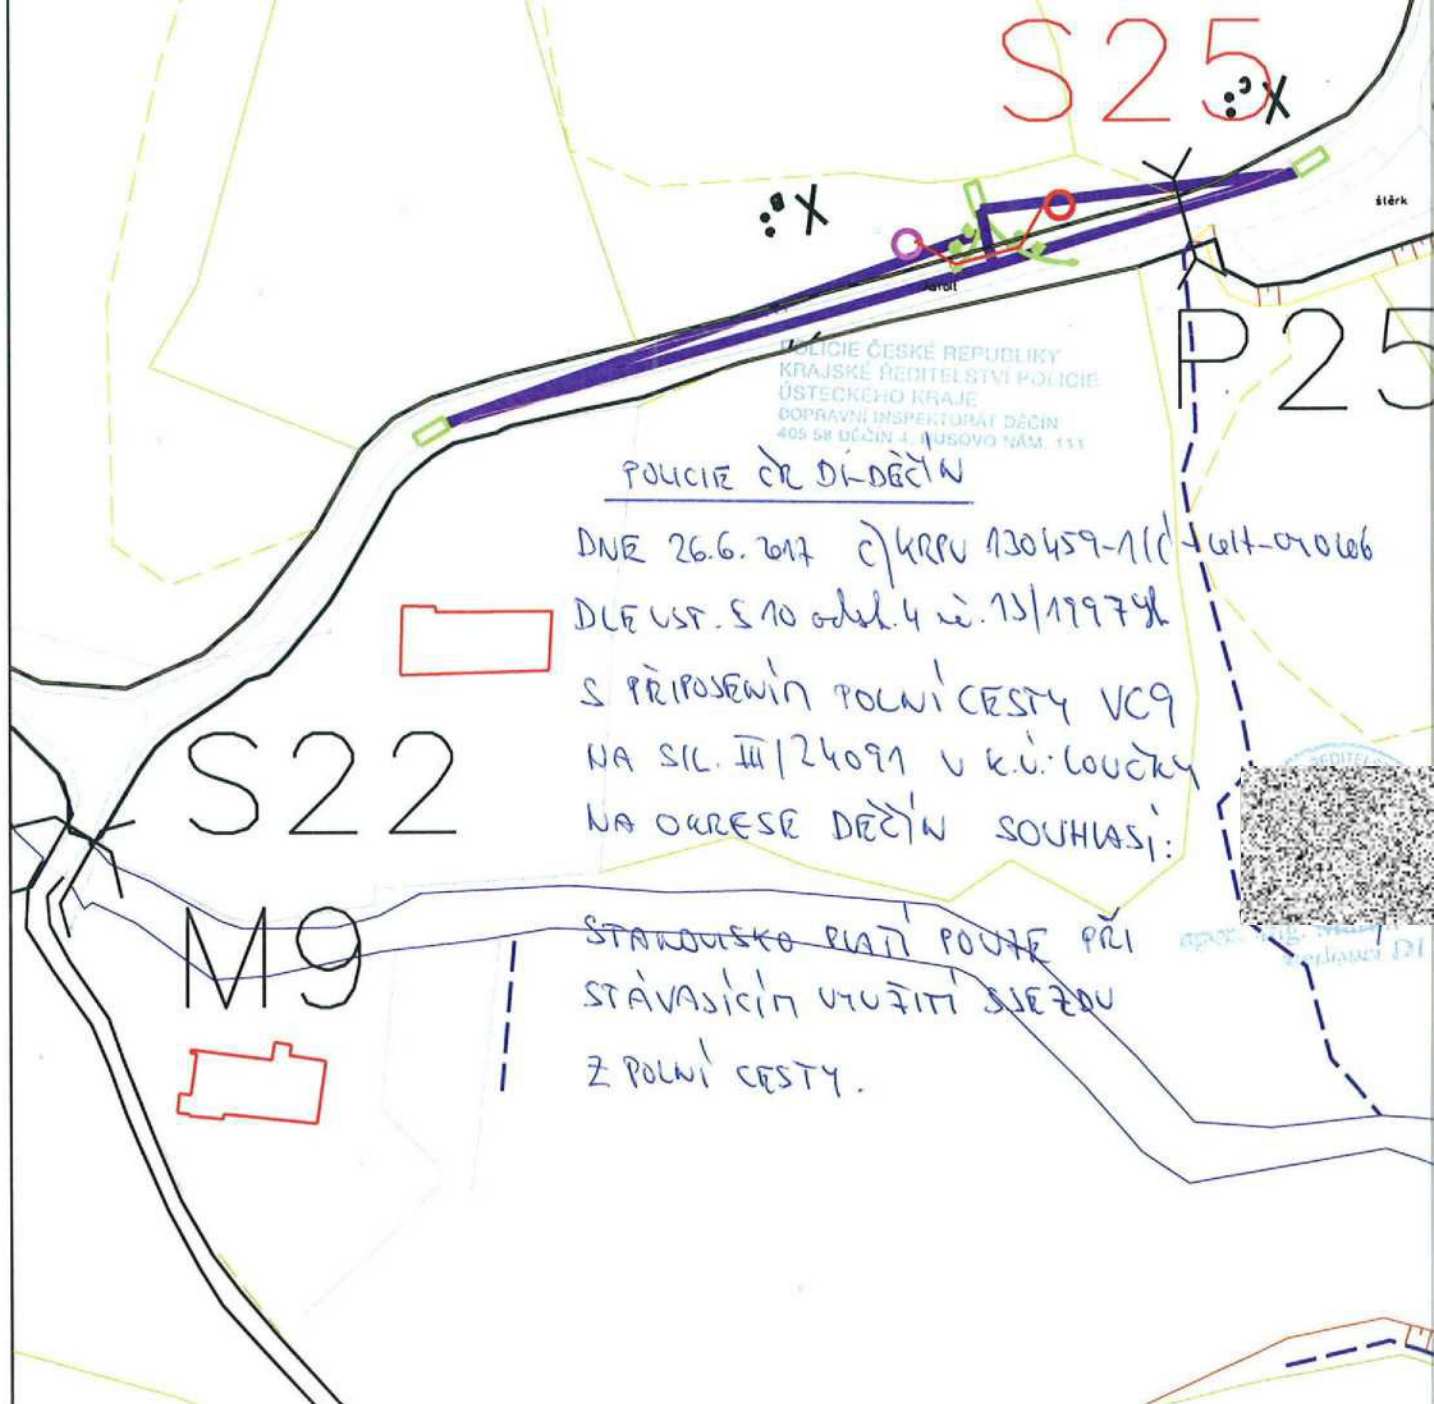 S25
X
X
štěrk
P25
POLICIE ČESKÉ REPUBLIKY
KRAJSKÉ ŘEDITELSTVÍ POLICIE
ÚSTECKÉHO KRAJE
DOPRAVNÍ INSPEKTORÁT DĚČÍN
405 58 DĚČÍN 4, HUSOVO NÁM. 111
POLICIE ČR DI-DĚČÍN
DNE 26.6.2017 čj KRPU 130459-1/
DLE UST. § 10 odst. 4 13/1997
S PŘIPOJENÍM POLNÍ CESTY VC9
NA SIL. III/24091 V K.Ú. LOUČKY
NA OKRESE DĚČÍN SOUHLASÍ:
S22
M9
STANOVISKO PLATÍ POUZE PŘI
STÁVAJÍCÍM VYUŽITÍ SJEZDU
Z POLNÍ CESTY.